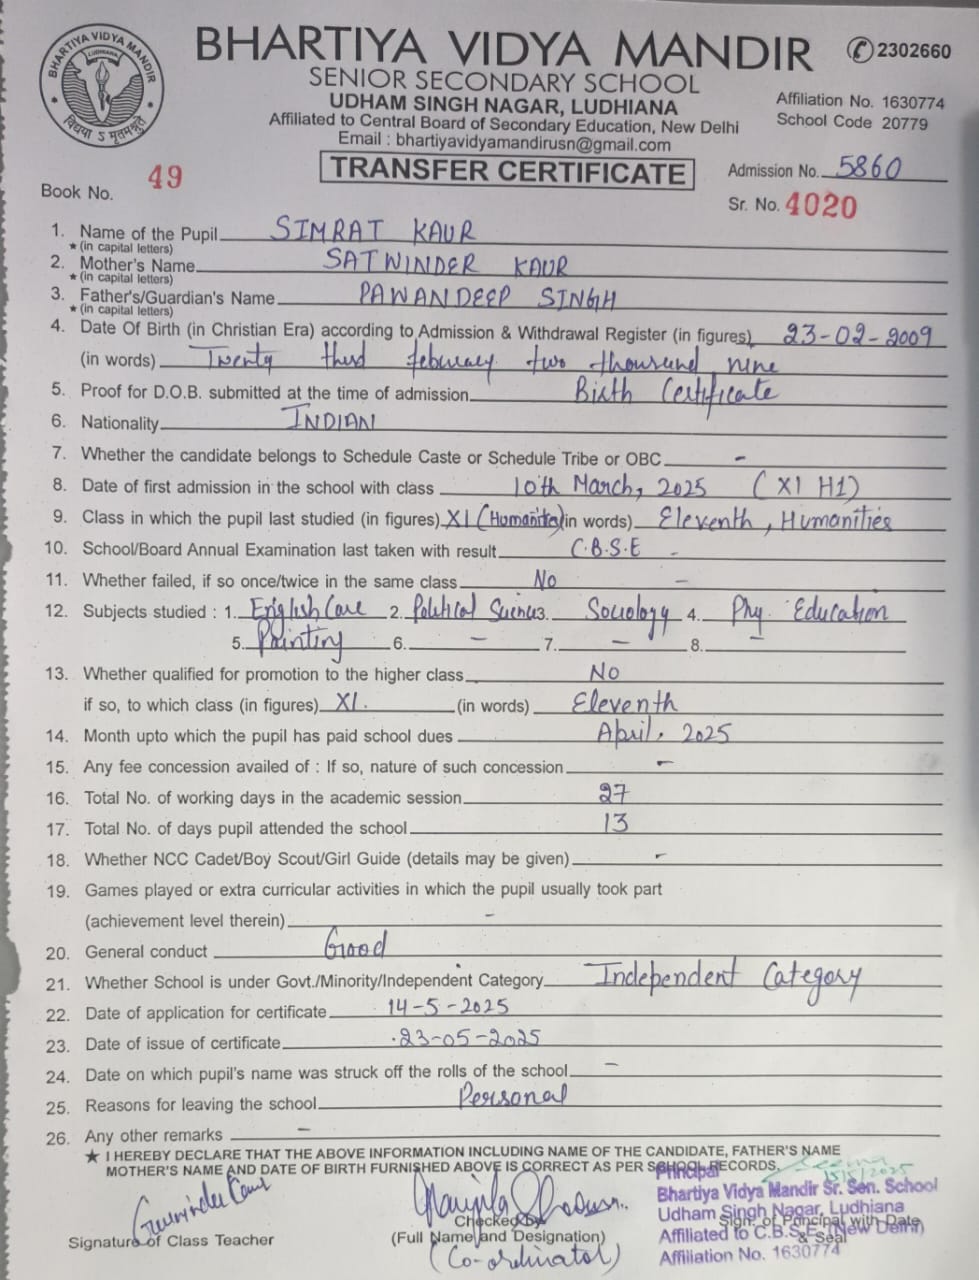 BHARTIYA VIDYA MANDIR
LUDHIANA
विद्यया ऽ मृतमश्नुते
BHARTIYA VIDYA MANDIR
✆2302660
SENIOR SECONDARY SCHOOL
UDHAM SINGH NAGAR, LUDHIANA
Affiliated to Central Board of Secondary Education, New Delhi
Email : bhartiyavidyamandirusn@gmail.com
Affiliation No. 1630774
School Code 20779
TRANSFER CERTIFICATE
Book No. 49
Admission No. 5860
Sr. No. 4020
1. Name of the Pupil SIMRAT KAUR
★ (in capital letters)
2. Mother's Name SATWINDER KAUR
★ (in capital letters)
3. Father's/Guardian's Name PAWANDEEP SINGH
★ (in capital letters)
4. Date Of Birth (in Christian Era) according to Admission & Withdrawal Register (in figures) 23-02-2009
(in words) Twenty third february two thousand nine
5. Proof for D.O.B. submitted at the time of admission Birth Certificate
6. Nationality INDIAN
7. Whether the candidate belongs to Schedule Caste or Schedule Tribe or OBC -
8. Date of first admission in the school with class 10th March, 2025 (XI H1)
9. Class in which the pupil last studied (in figures) XI (Humanities) in words) Eleventh, Humanities
10. School/Board Annual Examination last taken with result C.B.S.E -
11. Whether failed, if so once/twice in the same class No -
12. Subjects studied : 1. English Core 2. Political Science 3. Sociology 4. Phy. Education
5. Painting 6. - 7. - 8. -
13. Whether qualified for promotion to the higher class No
if so, to which class (in figures) XI. (in words) Eleventh
14. Month upto which the pupil has paid school dues April, 2025
15. Any fee concession availed of : If so, nature of such concession -
16. Total No. of working days in the academic session 27
17. Total No. of days pupil attended the school 13
18. Whether NCC Cadet/Boy Scout/Girl Guide (details may be given) -
19. Games played or extra curricular activities in which the pupil usually took part
(achievement level therein) -
20. General conduct Good
21. Whether School is under Govt./Minority/Independent Category Independent Category
22. Date of application for certificate 14-5-2025
23. Date of issue of certificate 23-05-2025
24. Date on which pupil's name was struck off the rolls of the school -
25. Reasons for leaving the school Personal
26. Any other remarks -
★ I HEREBY DECLARE THAT THE ABOVE INFORMATION INCLUDING NAME OF THE CANDIDATE, FATHER'S NAME
MOTHER'S NAME AND DATE OF BIRTH FURNISHED ABOVE IS CORRECT AS PER SCHOOL RECORDS.
Principal
Bhartiya Vidya Mandir Sr. Sen. School
Udham Singh Nagar, Ludhiana
Affiliated to C.B.S.E. (New Delhi)
Affiliation No. 1630774
Signature of Class Teacher
Checked by
(Full Name and Designation)
(Co-ordinator)
Sign. of Principal with Date
& Seal